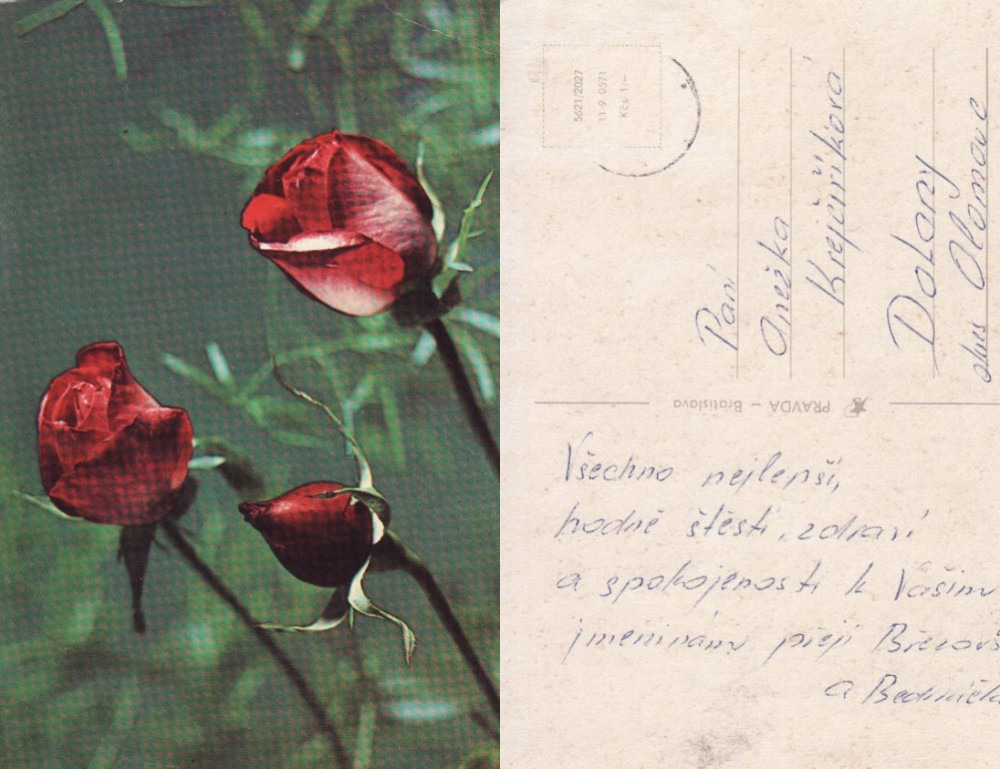 5621/2027
11 9 0571
Kčs 1,—
Paní
Anežka
Krejčiříková
Dolany
okres Olomouc
PRAVDA – Bratislava
Všechno nejlepší,
hodně štěstí, zdraví
a spokojenosti k Vašim
jmeninám přejí
a